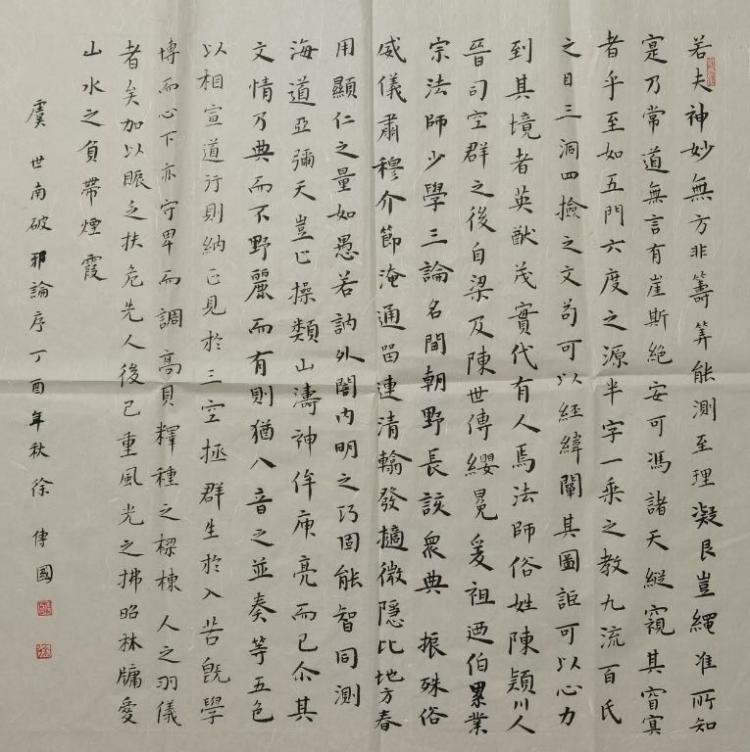 若夫神妙無方非籌筭能測至理凝邈豈繩准所知
寔乃常道無言有崖斯絕安可馮諸天縱窺其窅冥
者乎至如五門六度之源半字一乘之教九流百氏
之目三洞四撿之文苟可以經緯闡其圖詎可以心力
到其境者英猷茂實代有人焉法師俗姓陳潁川人
晉司空群之後自梁及陳世傳纓冕爰祖洒伯累業
宗法師少學三論名聞朝野長該眾典振殊俗
威儀肅穆介節淹通留連清翰發擿微隱比地方春
用顯仁之量如愚若訥外闇內明之巧固能智同測
海道亞彌天豈止操類山濤神侔庾亮而已尒其
文情乃典而不野麗而有則猶八音之並奏等五色
以相宣道行則納正見於三空拯群生於八苦既學
博而心下亦守卑而調高貝釋種之樑棟人之羽儀
者矣加以賑乏扶危先人後己重風光之拂昭林牖愛
山水之負帶煙霞
虞世南破邪論序丁酉年秋徐傳國